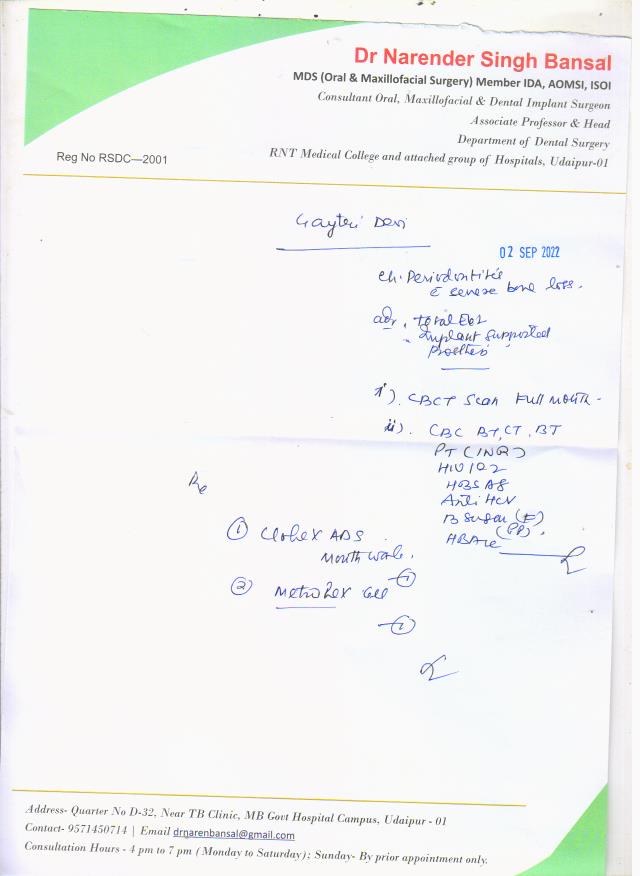 Dr Narender Singh Bansal
MDS (Oral & Maxillofacial Surgery) Member IDA, AOMSI, ISOI
Consultant Oral, Maxillofacial & Dental Implant Surgeon
Associate Professor & Head
Department of Dental Surgery
RNT Medical College and attached group of Hospitals, Udaipur-01
Reg No RSDC—2001
Gayteri Devi
02 SEP 2022
ch. Periodontitis
c severe bone loss.
adv. Total
Implant supported
i). CBCT Scan Full Mouth -
ii). CBC BT, CT, BT
PT (INR)
HIV 1&2
HBSAg
Anti HCV
B Sugar (F)
(PP).
HBA1c
Rx
① Clohex ADS
Mouth wash.
①
② Metrohex Gel
①
Address- Quarter No D-32, Near TB Clinic, MB Govt Hospital Campus, Udaipur - 01
Contact- 9571450714 | Email drnarenbansal@gmail.com
Consultation Hours - 4 pm to 7 pm (Monday to Saturday); Sunday- By prior appointment only.